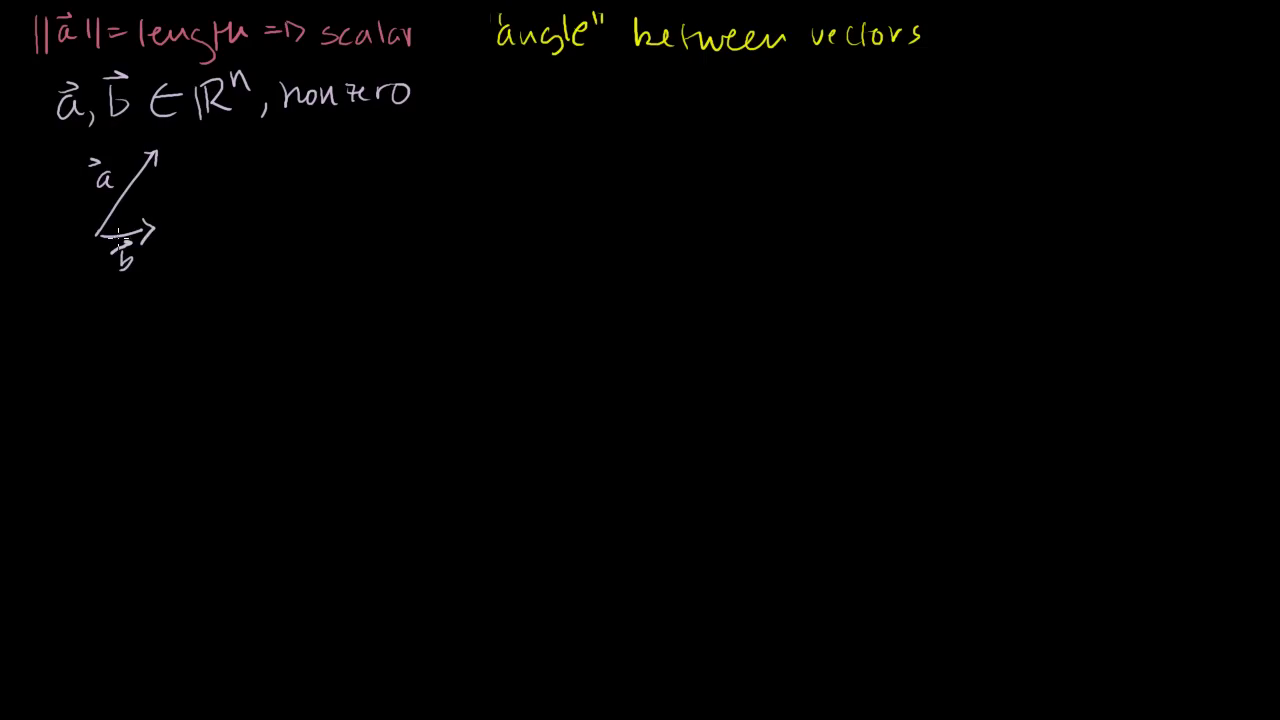 ||a⃗|| = length => scalar "angle" between vectors
a⃗, b⃗ ∈ ℝⁿ, nonzero
a⃗
b⃗